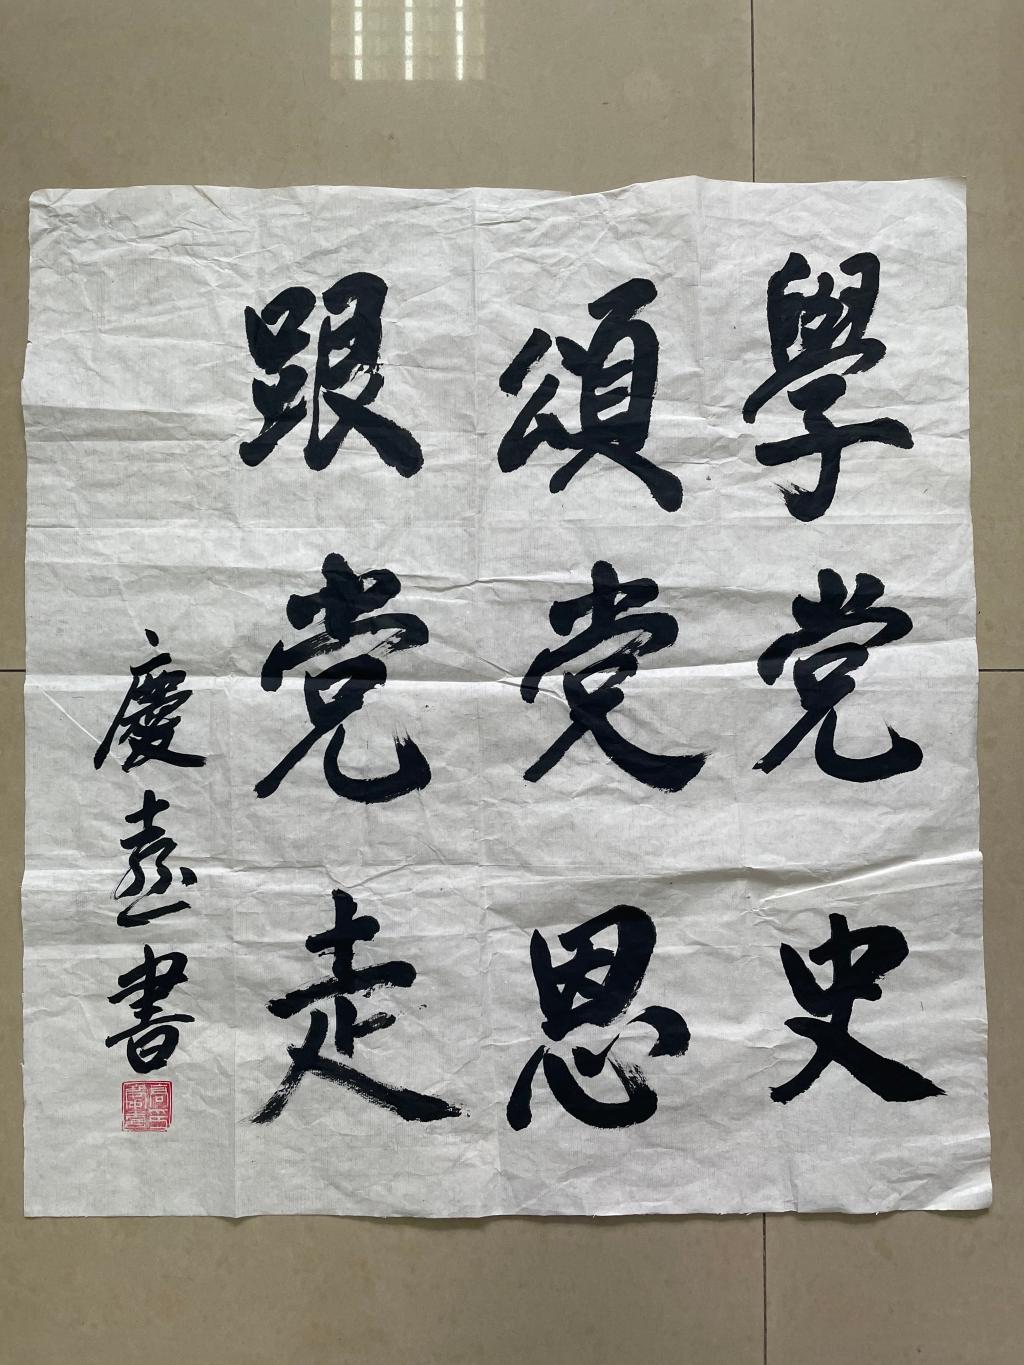 學党史
頌党恩
跟党走
慶喜書